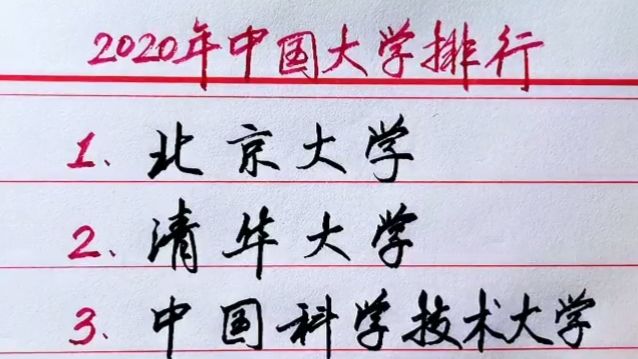 2020年中国大学排行
1、北京大学
2、清华大学
3、中国科学技术大学